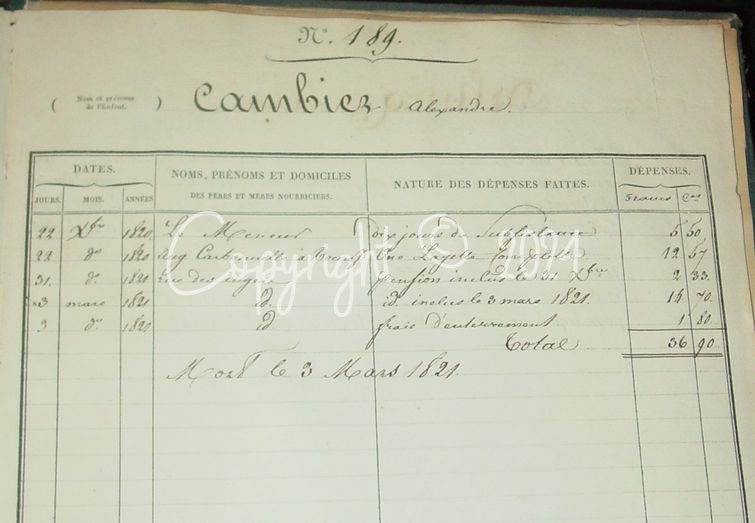 N.º 189.
( Nom et prénoms de l'Enfant. ) Cambier Alexandre.
DATES. NOMS, PRÉNOMS ET DOMICILES DES PERES ET MÈRES NOURRICIERS. NATURE DES DÉPENSES FAITES. DÉPENSES.
JOURS. MOIS. ANNÉES Francs Ces
22 Xbre 1820 Le Meneur jours de Subsistance 6 50
22 do 1820 Une Layette Complette 12 57
31. do 1820 rue des pension inclus le 31 Xbre 2 33.
3 mars 1821 id. id. inclus le 3 mars 1821. 14 70.
3 do 1821 id frais d'enterrement 1 80
Total 36 90.
Mort le 3 Mars 1821.
Copyright © 2021